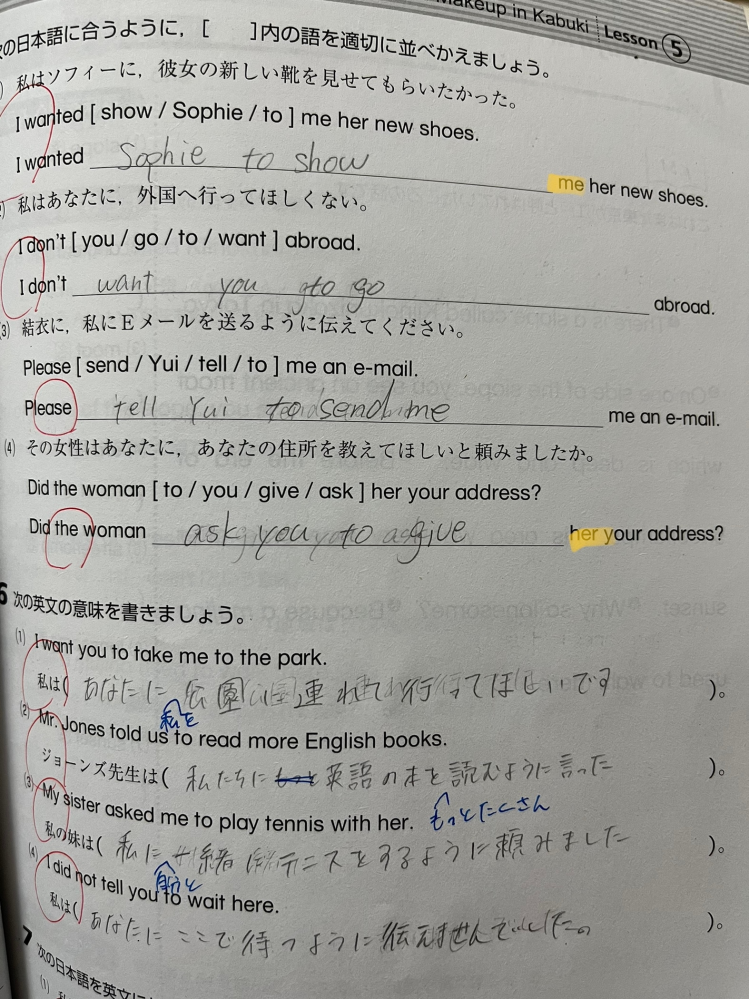 Makeup in Kabuki Lesson 5
の日本語に合うように，[ ]内の語を適切に並べかえましょう。
私はソフィーに，彼女の新しい靴を見せてもらいたかった。
I wanted [ show / Sophie / to ] me her new shoes.
I wanted Sophie to show me her new shoes.
私はあなたに，外国へ行ってほしくない。
I don't [ you / go / to / want ] abroad.
I don't want you to go abroad.
(3) 結衣に，私にEメールを送るように伝えてください。
Please [ send / Yui / tell / to ] me an e-mail.
Please tell Yui to send me me an e-mail.
(4) その女性はあなたに，あなたの住所を教えてほしいと頼みましたか。
Did the woman [ to / you / give / ask ] her your address?
Did the woman ask you to give her your address?
6 次の英文の意味を書きましょう。
(1) I want you to take me to the park.
私は( あなたに 公園 連れて 行ってほしいです )。
私を
(2) Mr. Jones told us to read more English books.
ジョーンズ先生は( 私たちに もっと 英語の本を読むように言った )。
もっとたくさん
(3) My sister asked me to play tennis with her.
私の妹は( 私に テニスをするように頼みました )。
(4) I did not tell you to wait here.
私は( あなたに ここで待つように伝えませんでした )。
7 次の日本語を英文に
(1)